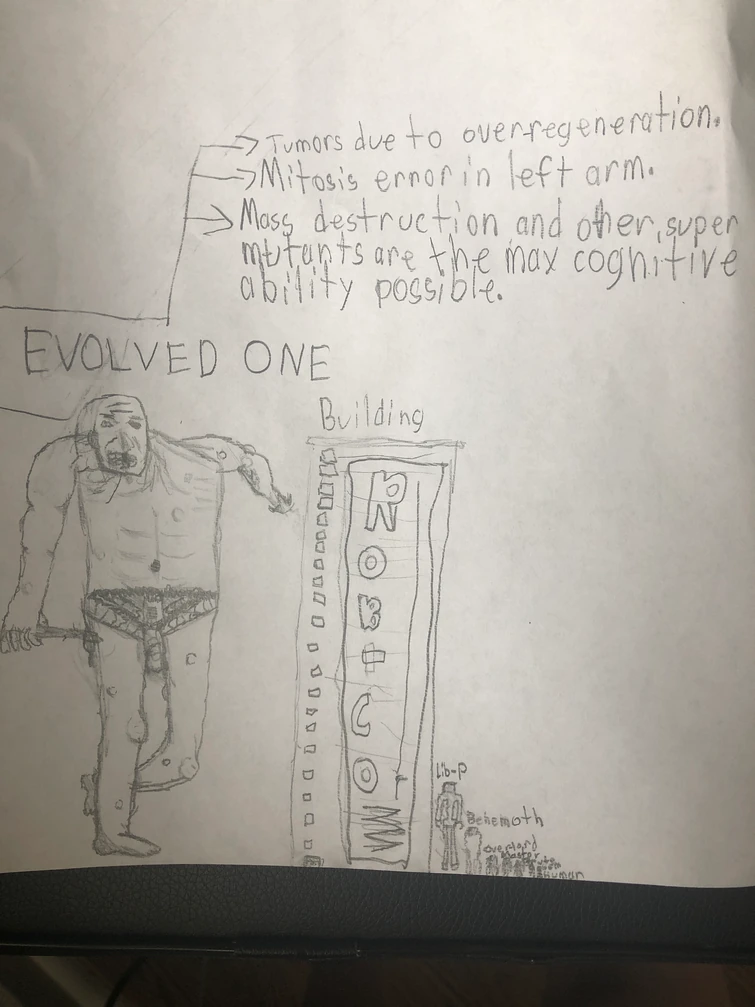 Tumors due to over-regeneration.
Mitosis error in left arm.
Mass destruction and other super
mutants are the max cognitive
ability possible.
EVOLVED ONE
Building
ROBCO
Lib-P
Behemoth
Overlord
Master
Human